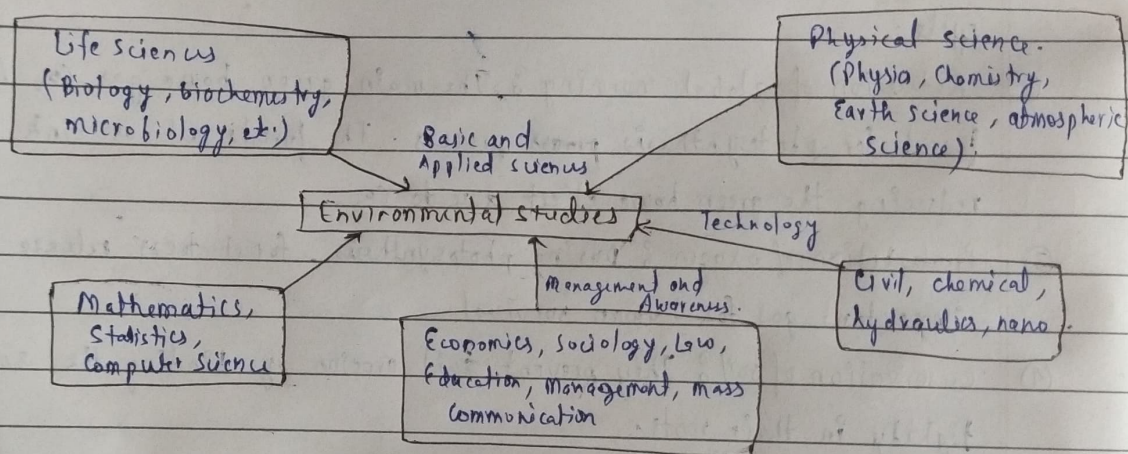 Life sciences
(Biology, biochemistry,
microbiology, etc.)
Physical science.
(Physics, Chemistry,
Earth science, atmospheric
science).
Basic and
Applied sciences
Environmental studies
Technology
Management and
Awareness.
Mathematics,
Statistics,
Computer Science
Economics, Sociology, Law,
Education, management, mass
communication
Civil, chemical,
hydraulics, nano.